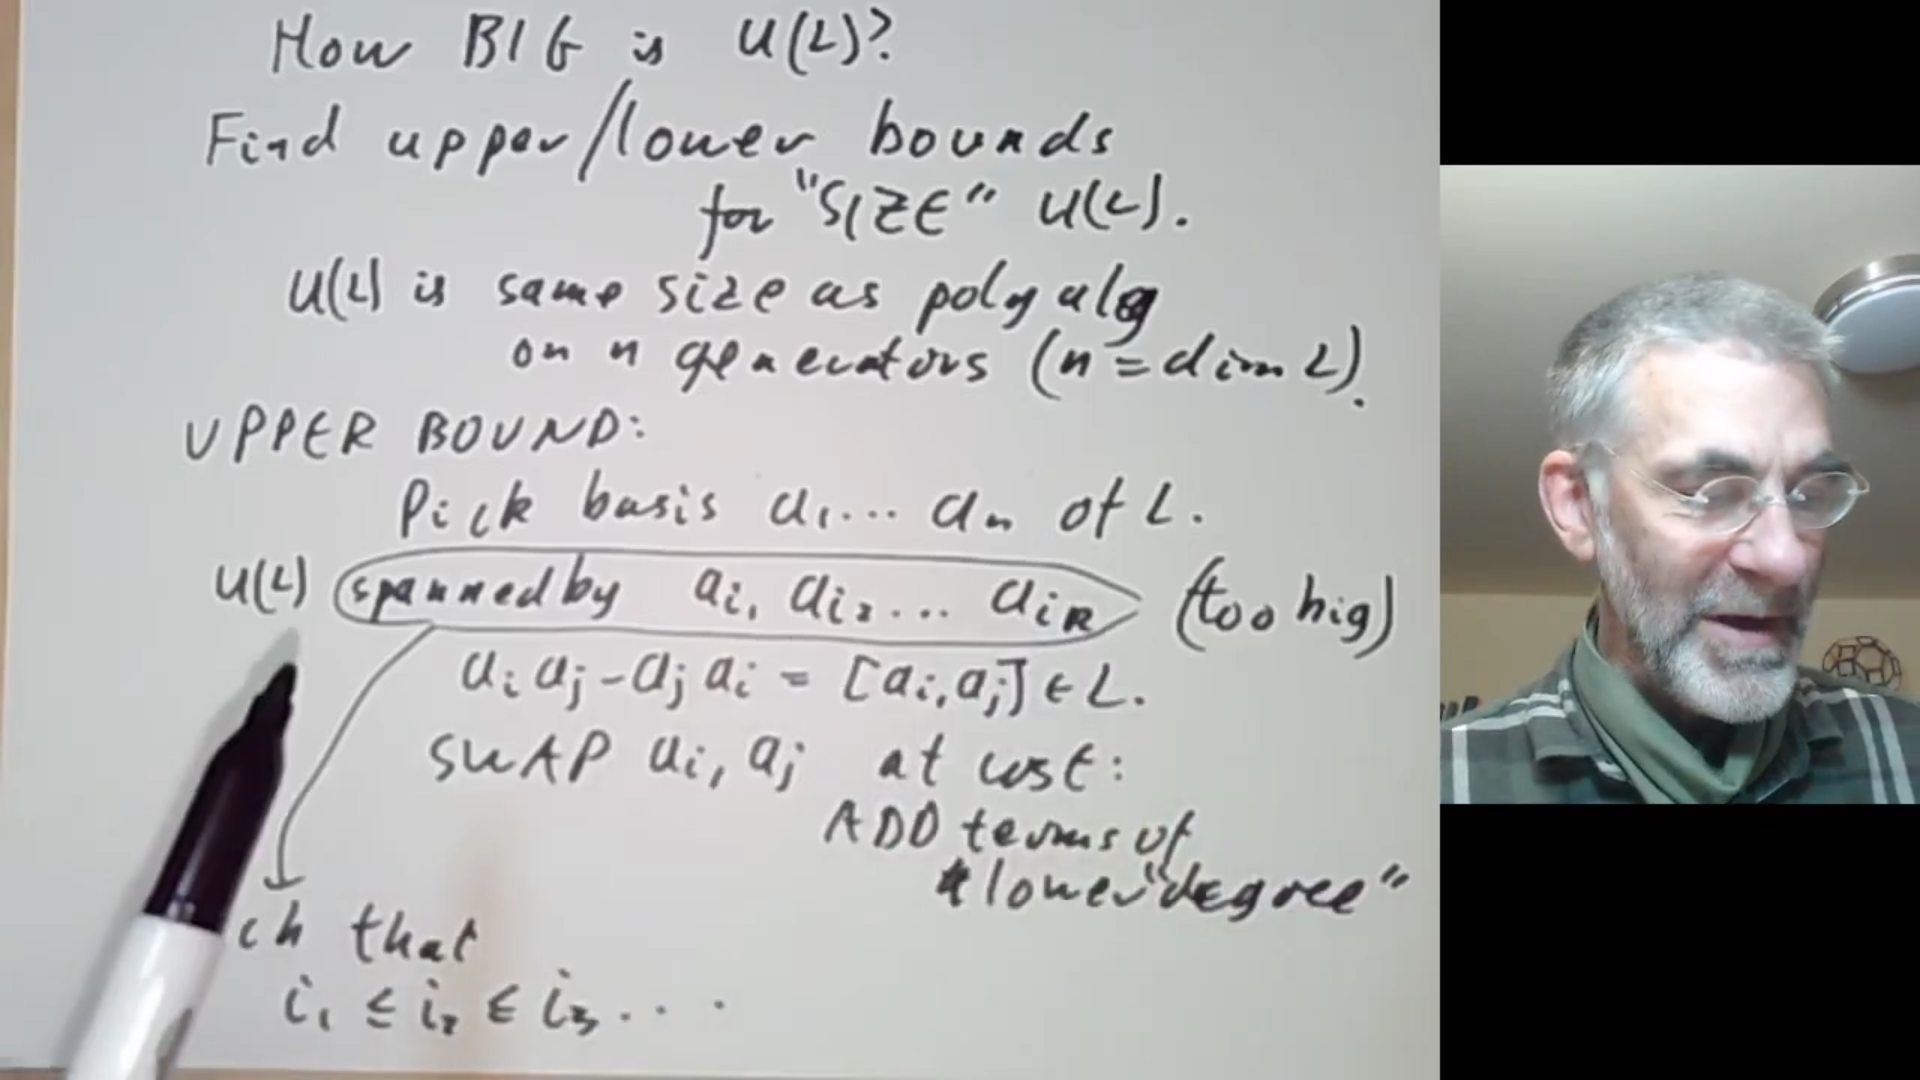 How BIG is U(L)?
Find upper/lower bounds
for "SIZE" U(L).
U(L) is same size as poly alg
on n generators (n = dim L).
UPPER BOUND:
Pick basis a₁... aₙ of L.
U(L) spanned by aᵢ₁ aᵢ₂ ... aᵢR (too big)
aᵢ aⱼ - aⱼ aᵢ = [aᵢ, aⱼ] ∈ L.
SWAP aᵢ, aⱼ at cost:
ADD terms of
lower "degree"
ch that
i₁ ≤ i₂ ≤ i₃ ...